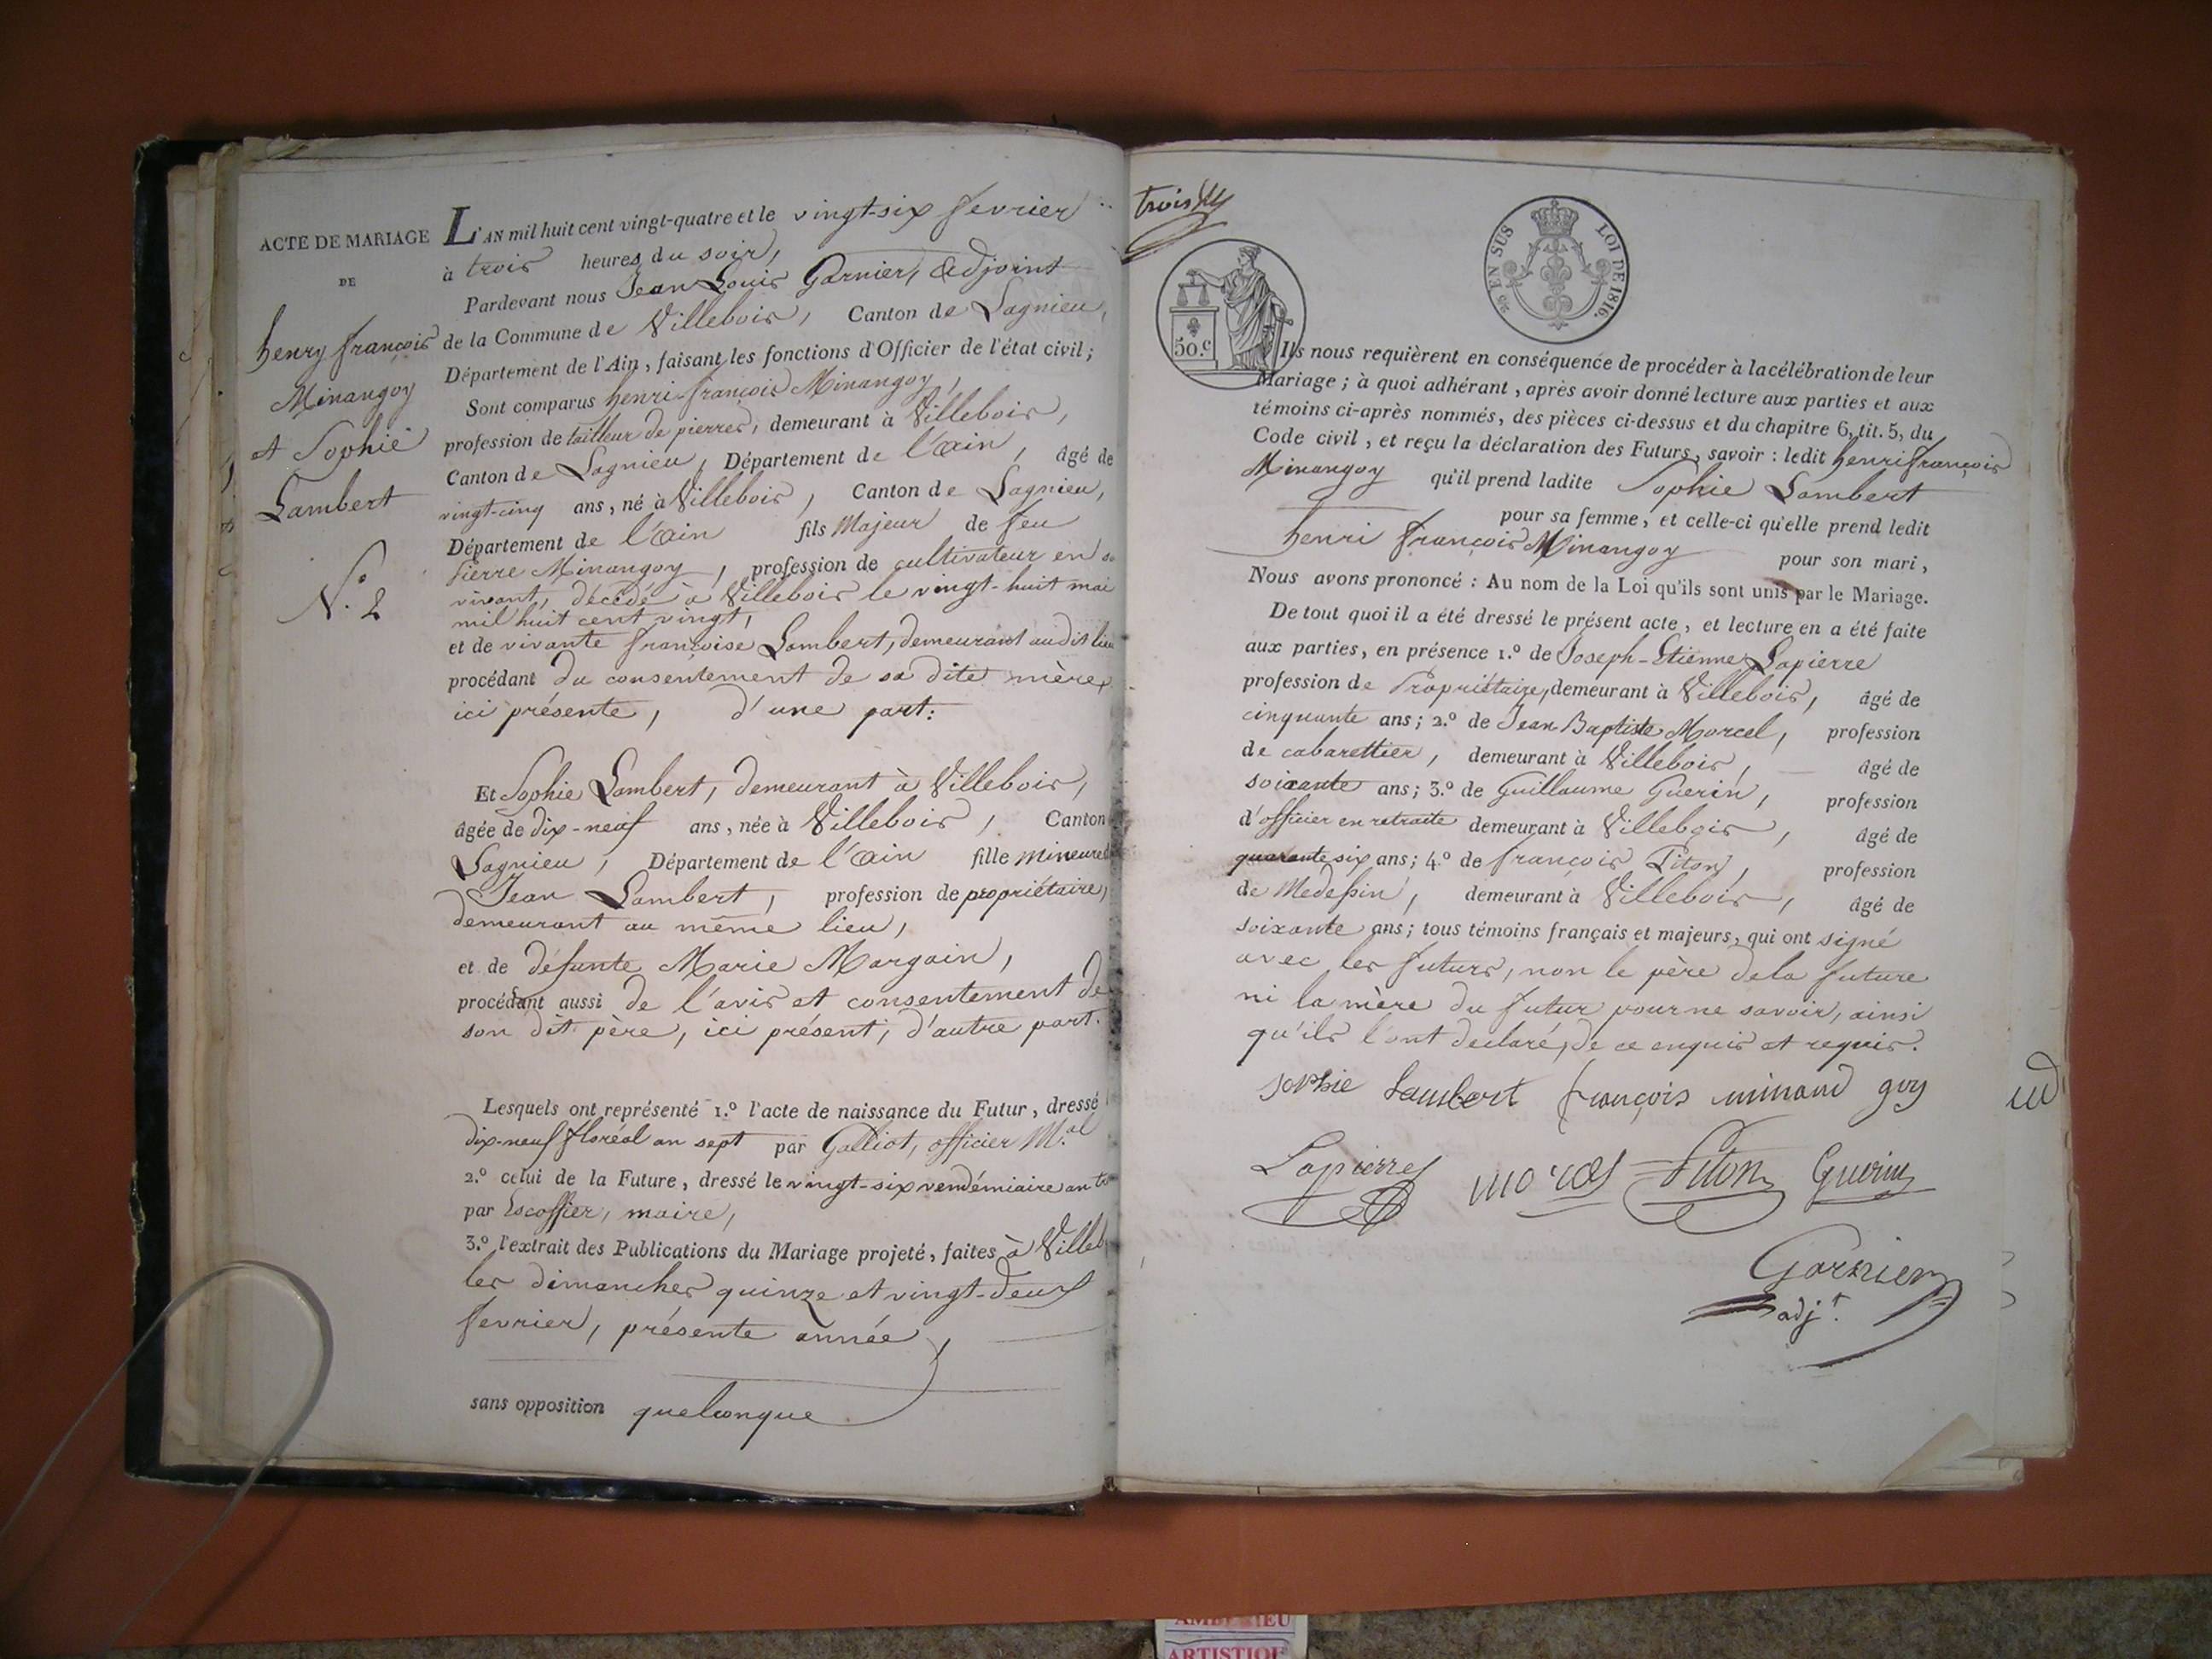 ACTE DE MARIAGE
DE
henry françois
Minangoy
et Sophie
Lambert
N.° 2
L'AN mil huit cent vingt-quatre et le vingt-six fevrier
à trois heures du soir,
Pardevant nous Jean Louis Garnier, adjoint
de la Commune de Villebois, Canton de Lagnieu,
Département de l'Ain, faisant les fonctions d'Officier de l'état civil;
Sont comparus henri-françois Minangoy,
profession de tailleur de pierres, demeurant à Villebois,
Canton de Lagnieu, Département de l'ain, âgé de
vingt-cinq ans, né à Villebois, Canton de Lagnieu,
Département de l'ain fils Majeur de feu
Pierre Minangoy, profession de cultivateur en so
vivant, décédé à Villebois le vingt-huit mai
mil huit cent vingt,
et de vivante françoise Lambert, demeurant audit lieu
procédant du consentement de sa dite mère,
ici présente, d'une part:
Et Sophie Lambert, demeurant à Villebois,
âgée de dix-neuf ans, née à Villebois, Canton
Lagnieu, Département de l'ain fille mineure
Jean Lambert, profession de propriétaire,
demeurant au même lieu,
et de défunte Marie Margain,
procédant aussi de l'avis et consentement de
son dit père, ici présent, d'autre part.
Lesquels ont représenté 1.° l'acte de naissance du Futur, dressé
dix-neuf floréal an sept par Galliot, officier M.al
2.° celui de la Future, dressé le vingt-six vendémiaire an
par Escoffier, maire,
3.° l'extrait des Publications du Mariage projeté, faites à Villeb
les dimanches quinze et vingt-deux
fevrier, présente année,
sans opposition quelconque
trois
50.c
EN SUS LOI DE 1816.
Ils nous requièrent en conséquence de procéder à la célébration de leur
Mariage; à quoi adhérant, après avoir donné lecture aux parties et aux
témoins ci-après nommés, des pièces ci-dessus et du chapitre 6, tit. 5, du
Code civil, et reçu la déclaration des Futurs, savoir : ledit henri françois
Minangoy qu'il prend ladite Sophie Lambert
pour sa femme, et celle-ci qu'elle prend ledit
henri françois Minangoy pour son mari,
Nous avons prononcé : Au nom de la Loi qu'ils sont unis par le Mariage.
De tout quoi il a été dressé le présent acte, et lecture en a été faite
aux parties, en présence 1.° de Joseph-Etienne Lapierre
profession de Propriétaire, demeurant à Villebois, âgé de
cinquante ans; 2.° de Jean Baptiste Marcel, profession
de cabarettier, demeurant à Villebois, âgé de
soixante ans; 3.° de Guillaume Guerin, profession
d'officier en retraite demeurant à Villebois, âgé de
quarante six ans; 4.° de françois Piton, profession
de Medessin, demeurant à Villebois, âgé de
soixante ans; tous témoins français et majeurs, qui ont signé
avec les futurs, non le père dela future
ni la mère du futur pour ne savoir, ainsi
qu'ils l'ont declaré, de ce enquis et requis.
sophie Lambert françois minand goy
Lapierre Piton Guerin
Garnier
adj.t
ARTISTIQUE